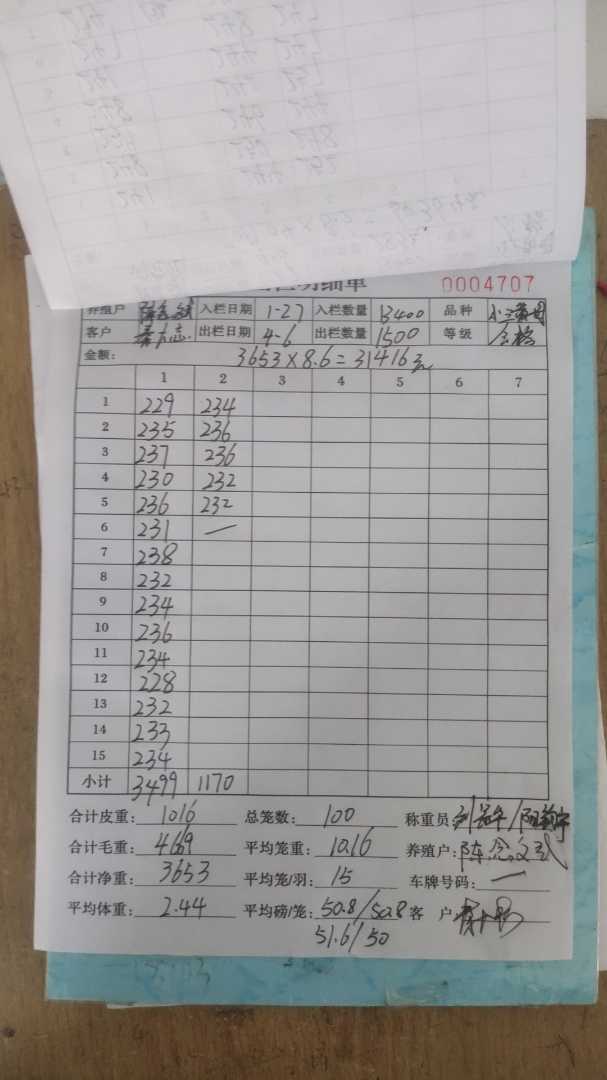 明细单 0004707
养殖户 入栏日期 1-27 入栏数量 13400 品种
客户 出栏日期 4-6 出栏数量 1500 等级 合格
金额: 3653×8.6=31416元
1 2 3 4 5 6 7
1 229 234
2 235 236
3 237 236
4 230 232
5 236 232
6 231 —
7 238
8 232
9 234
10 236
11 234
12 228
13 232
14 233
15 234
小计 3499 1170
合计皮重: 1016 总笼数: 100 称重员:
合计毛重: 4669 平均笼重: 10.16 养殖户: 陈念
合计净重: 3653 平均笼/羽: 15 车牌号码: —
平均体重: 2.44 平均磅/笼: 50.8/50.8 客户
51.6/50